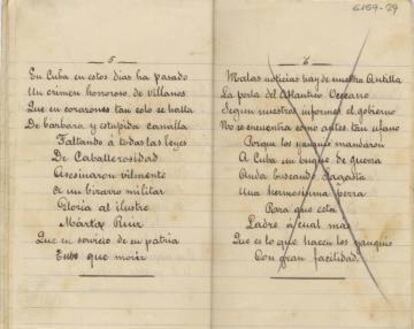 6159-29
5
En Cuba en estos dias ha pasado
Un crimen horroroso de villanos
Que en corazones tan solo se halla
De bárbara y estupida canalla
Faltando á todas las leyes
De Caballerosidad
Asesinaron vilmente
A un bizarro militar
Gloria al ilustre
Mártir Ruiz
Que en servicio de su patria
Tubo que morir
6
Malas noticias hay de nuestra Antilla
La perla del Atlantico Occeano
Segun nuestros informes el gobierno
No se encuentra como antes tan ufano
Porque los yanquis mandaron
A Cuba un buque de guerra
Anda buscando
Una hermosisima perra
Para que esta
Ladre á cual mas
Que es lo que hacen los yanquis
Con gran facilidad.